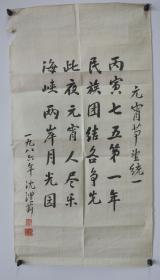 元宵节望统一
丙寅七五第一年
民族团结各争先
此夜元宵人尽乐
海峡两岸月光圆
一九八六年 沈澄